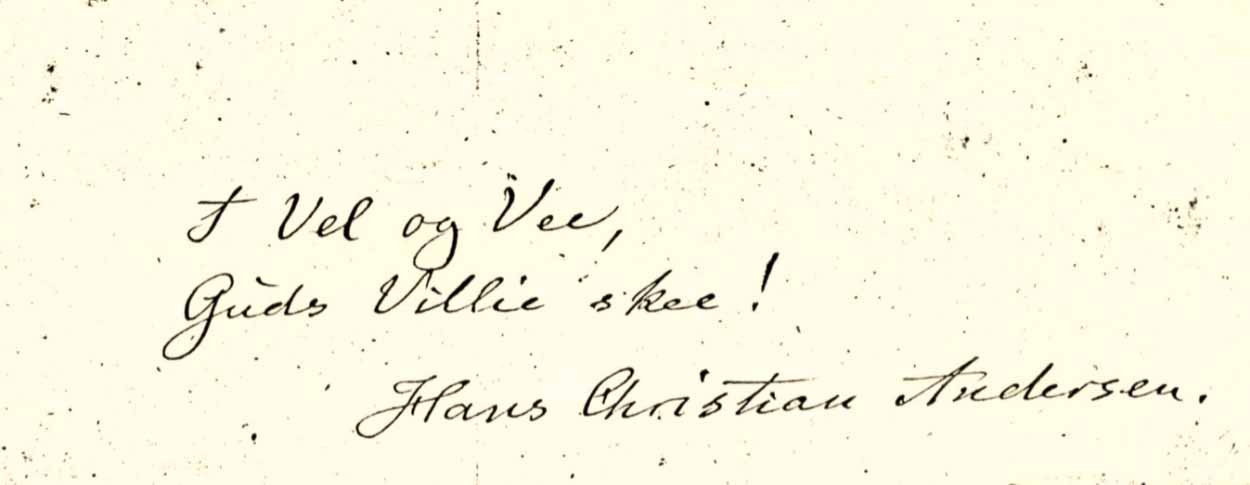 I Vel og Vee,
Guds Villie skee!
Hans Christian Andersen.